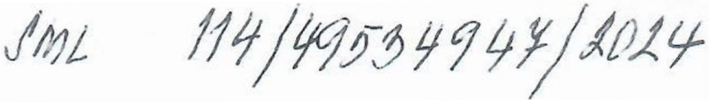 SML 114/49534947/2024